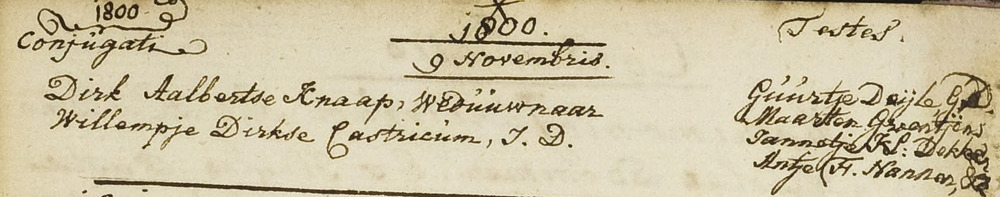 1800
Conjúgati
1800.
Testes.
9 Novembris.
Dirk Aalbertse Knaap, Wedúúwnaar
Willempje Dirkse Castricúm, J. D.
Gúúrtje Deijle
Maarten Groentjens
Jannetje Kl: Dekker
Antje H. Nannen, &c